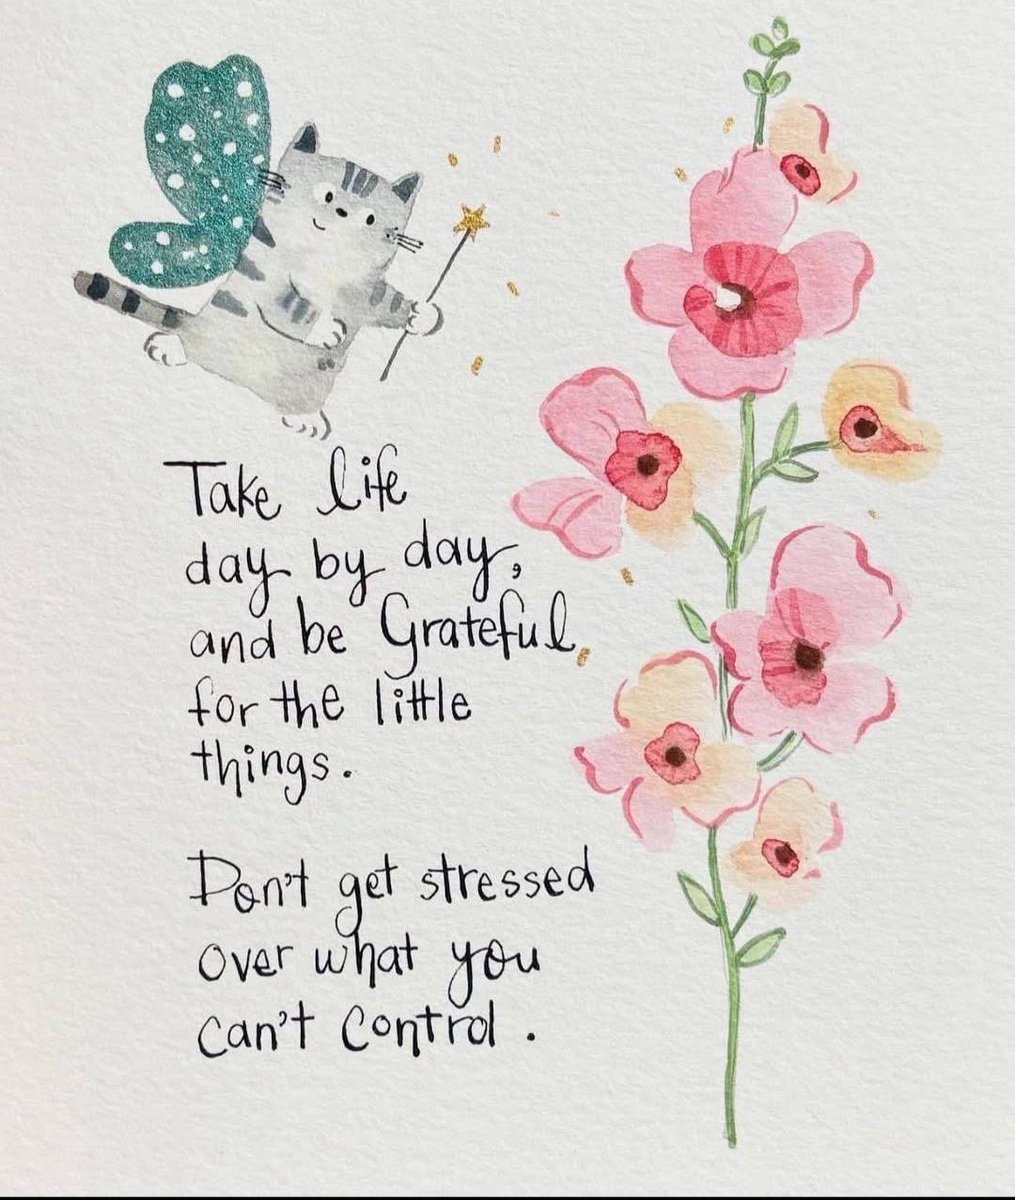 Take life
day by day,
and be Grateful
for the little
things.
Don't get stressed
over what you
can't control.